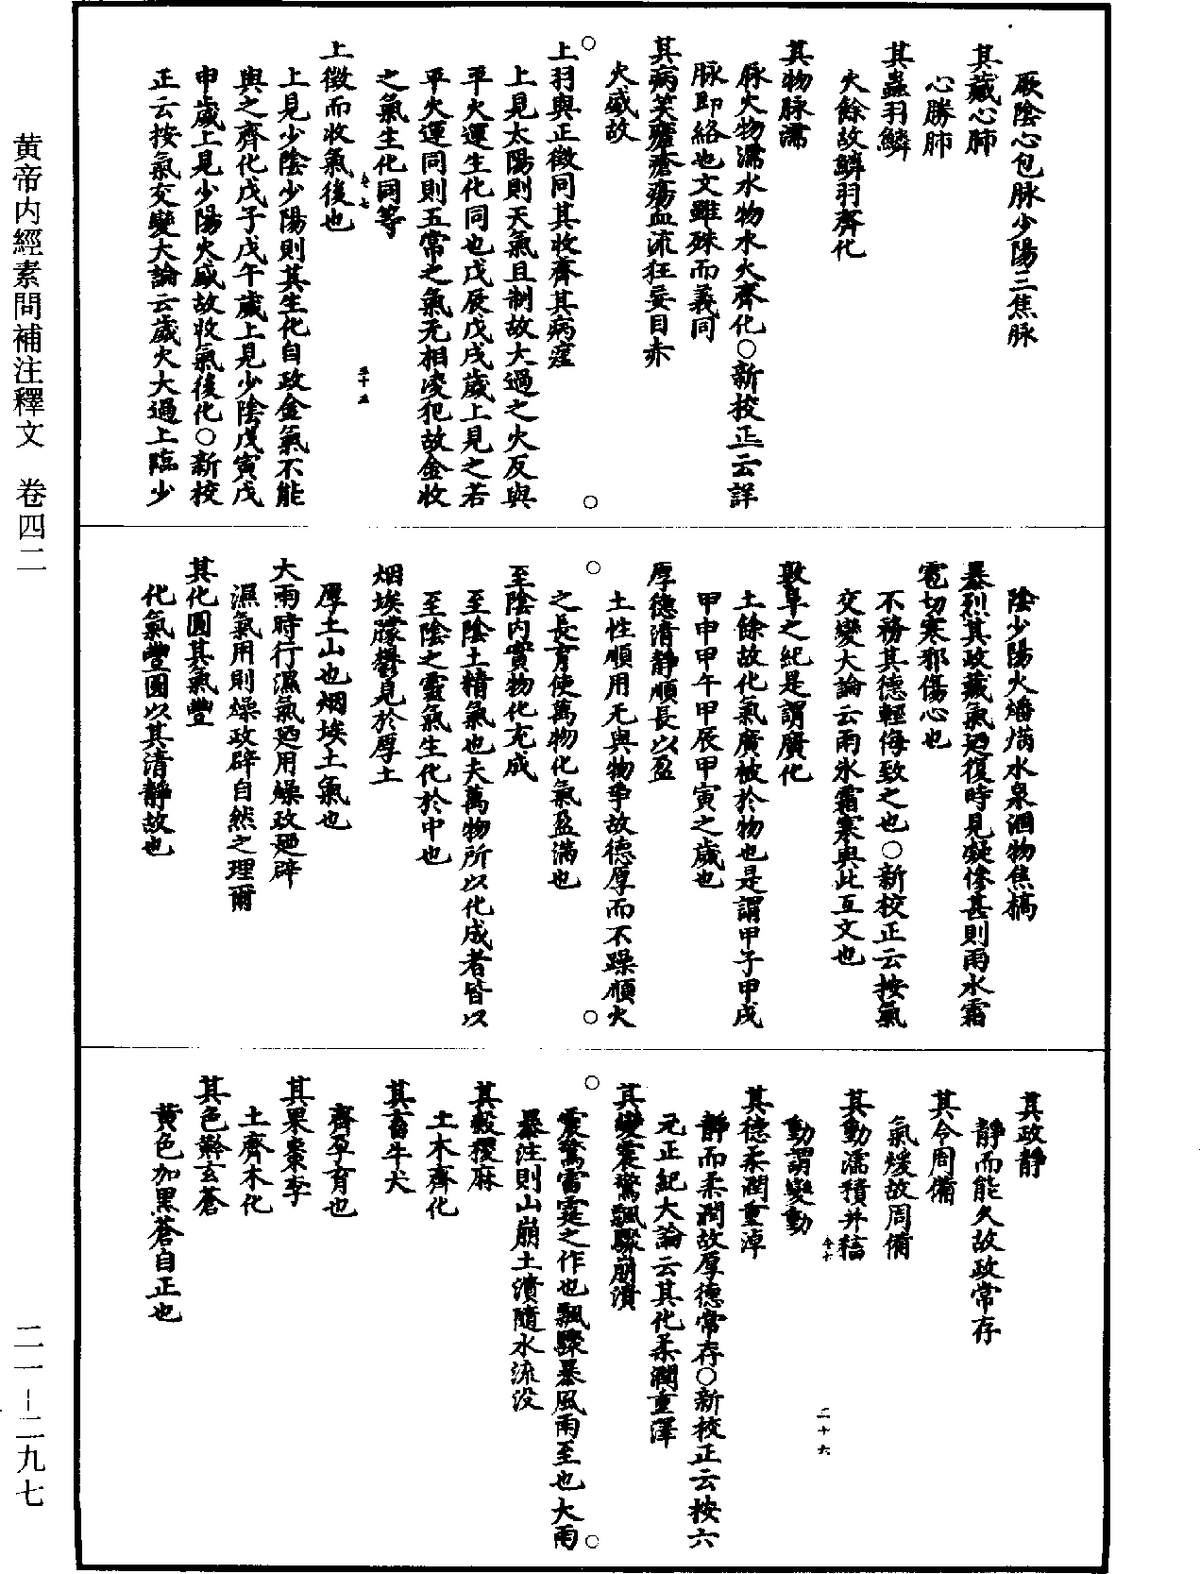 黄帝内經素問補注釋文　卷四二
二一-二九七
厥陰心包脉少陽三焦脉
其藏心肺
心勝肺
其蟲羽鱗
火餘故鱗羽齊化
其物脉濡
脉火物濡水物水火齊化○新校正云詳
脉即絡也文雖殊而義同
其病笑瘧瘡瘍血流狂妄目赤
火盛故
上羽與正徵同其收齊其病痓
上見太陽則天氣且制故大過之火反與
平火運生化同也戊辰戊戌歲上見之若
平火運同則五常之氣无相凌犯故金收
之氣生化同等
上徵而收氣後也
上見少陰少陽則其生化自政金氣不能
與之齊化戊子戊午歲上見少陰戊寅戊
申歲上見少陽火盛故收氣後化○新校
正云按氣交變大論云歲火大過上臨少
陰少陽火燔焫水泉涸物焦槁
暴烈其政藏氣廼復時見凝慘甚則雨水霜
雹切寒邪傷心也
不務其德輕侮致之也○新校正云按氣
交變大論云雨氷霜寒與此互文也
敦阜之紀是謂廣化
土餘故化氣廣被於物也是謂甲子甲戌
甲申甲午甲辰甲寅之歲也
厚德清静順長以盈
土性順用无與物争故德厚而不躁順火
之長育使萬物化氣盈滿也
至陰内實物化充成
至陰土精氣也夫萬物所以化成者皆以
至陰之靈氣生化於中也
烟埃朦鬱見於厚土
厚土山也烟埃土氣也
大雨時行濕氣廼用燥政廼辟
濕氣用則燥政辟自然之理爾
其化圓其氣豐
化氣豐圓以其清静故也
其政静
静而能久故政常存
其令周備
氣緩故周備
其動濡積并穡
動謂變動
其德柔潤重淖
静而柔潤故厚德常存○新校正云按六
元正紀大論云其化柔潤重澤
其變震驚飄驟崩潰
震驚雷霆之作也飄驟暴風雨至也大雨
暴注則山崩土潰隨水流没
其穀稷麻
土木齊化
其畜牛犬
齊孕育也
其果棗李
土齊木化
其色黅玄蒼
黄色加黑蒼自正也